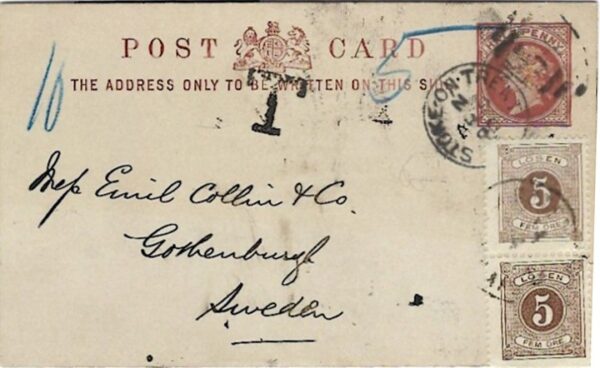 POST CARD
THE ADDRESS ONLY TO BE WRITTEN ON THIS SIDE
10
T
5
PENNY
STOKE-ON-TRENT
Emil Collin & Co.
Gothenburgh
Sweden
LÖSEN
5
FEM ÖRE
LÖSEN
5
FEM ÖRE